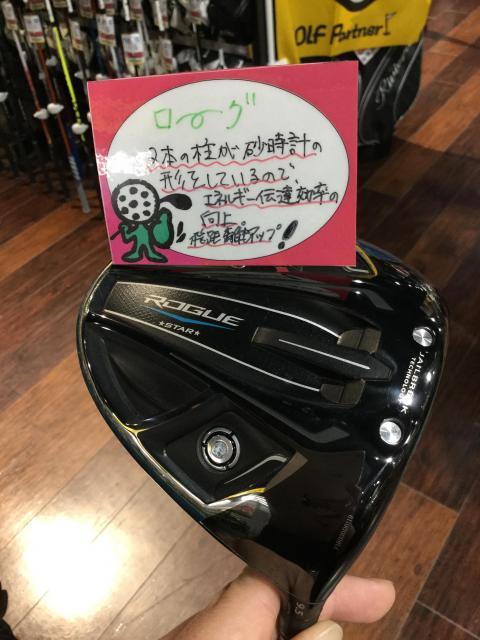 OLF Partner
ローグ
2本の柱が砂時計の
形をしているので、
エネルギー伝達効率の
向上。
飛距離アップ!
ROGUE
★STAR★
JAILBREAK
TECHNOLOGY
9.5